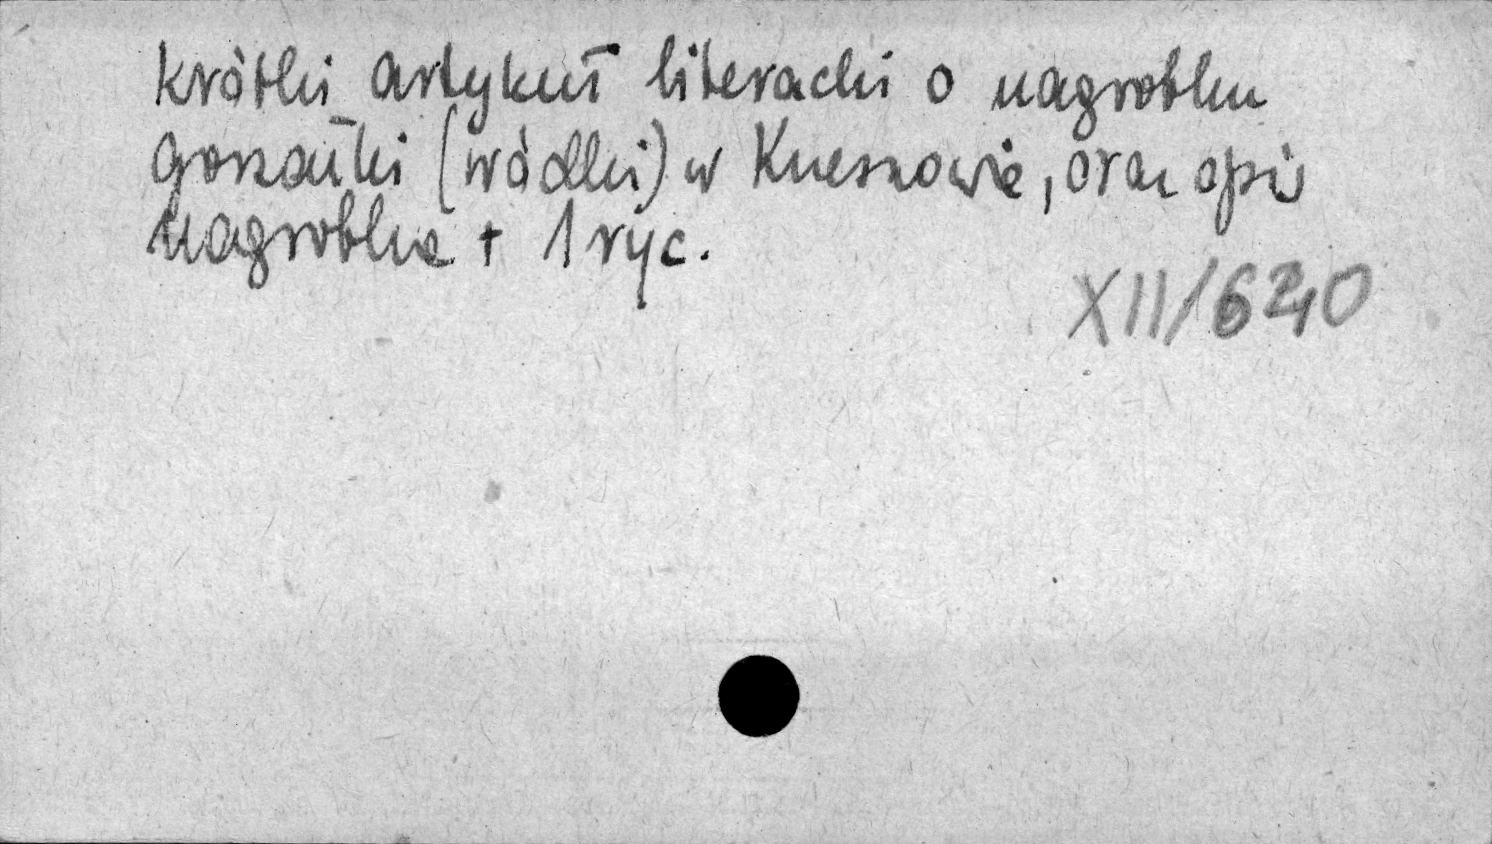 Krótki artykuł literacki o nagrobku
Gorzałki (wódki) w Knerzowie, oraz opis
nagrobka + 1 ryc.
XII/6240